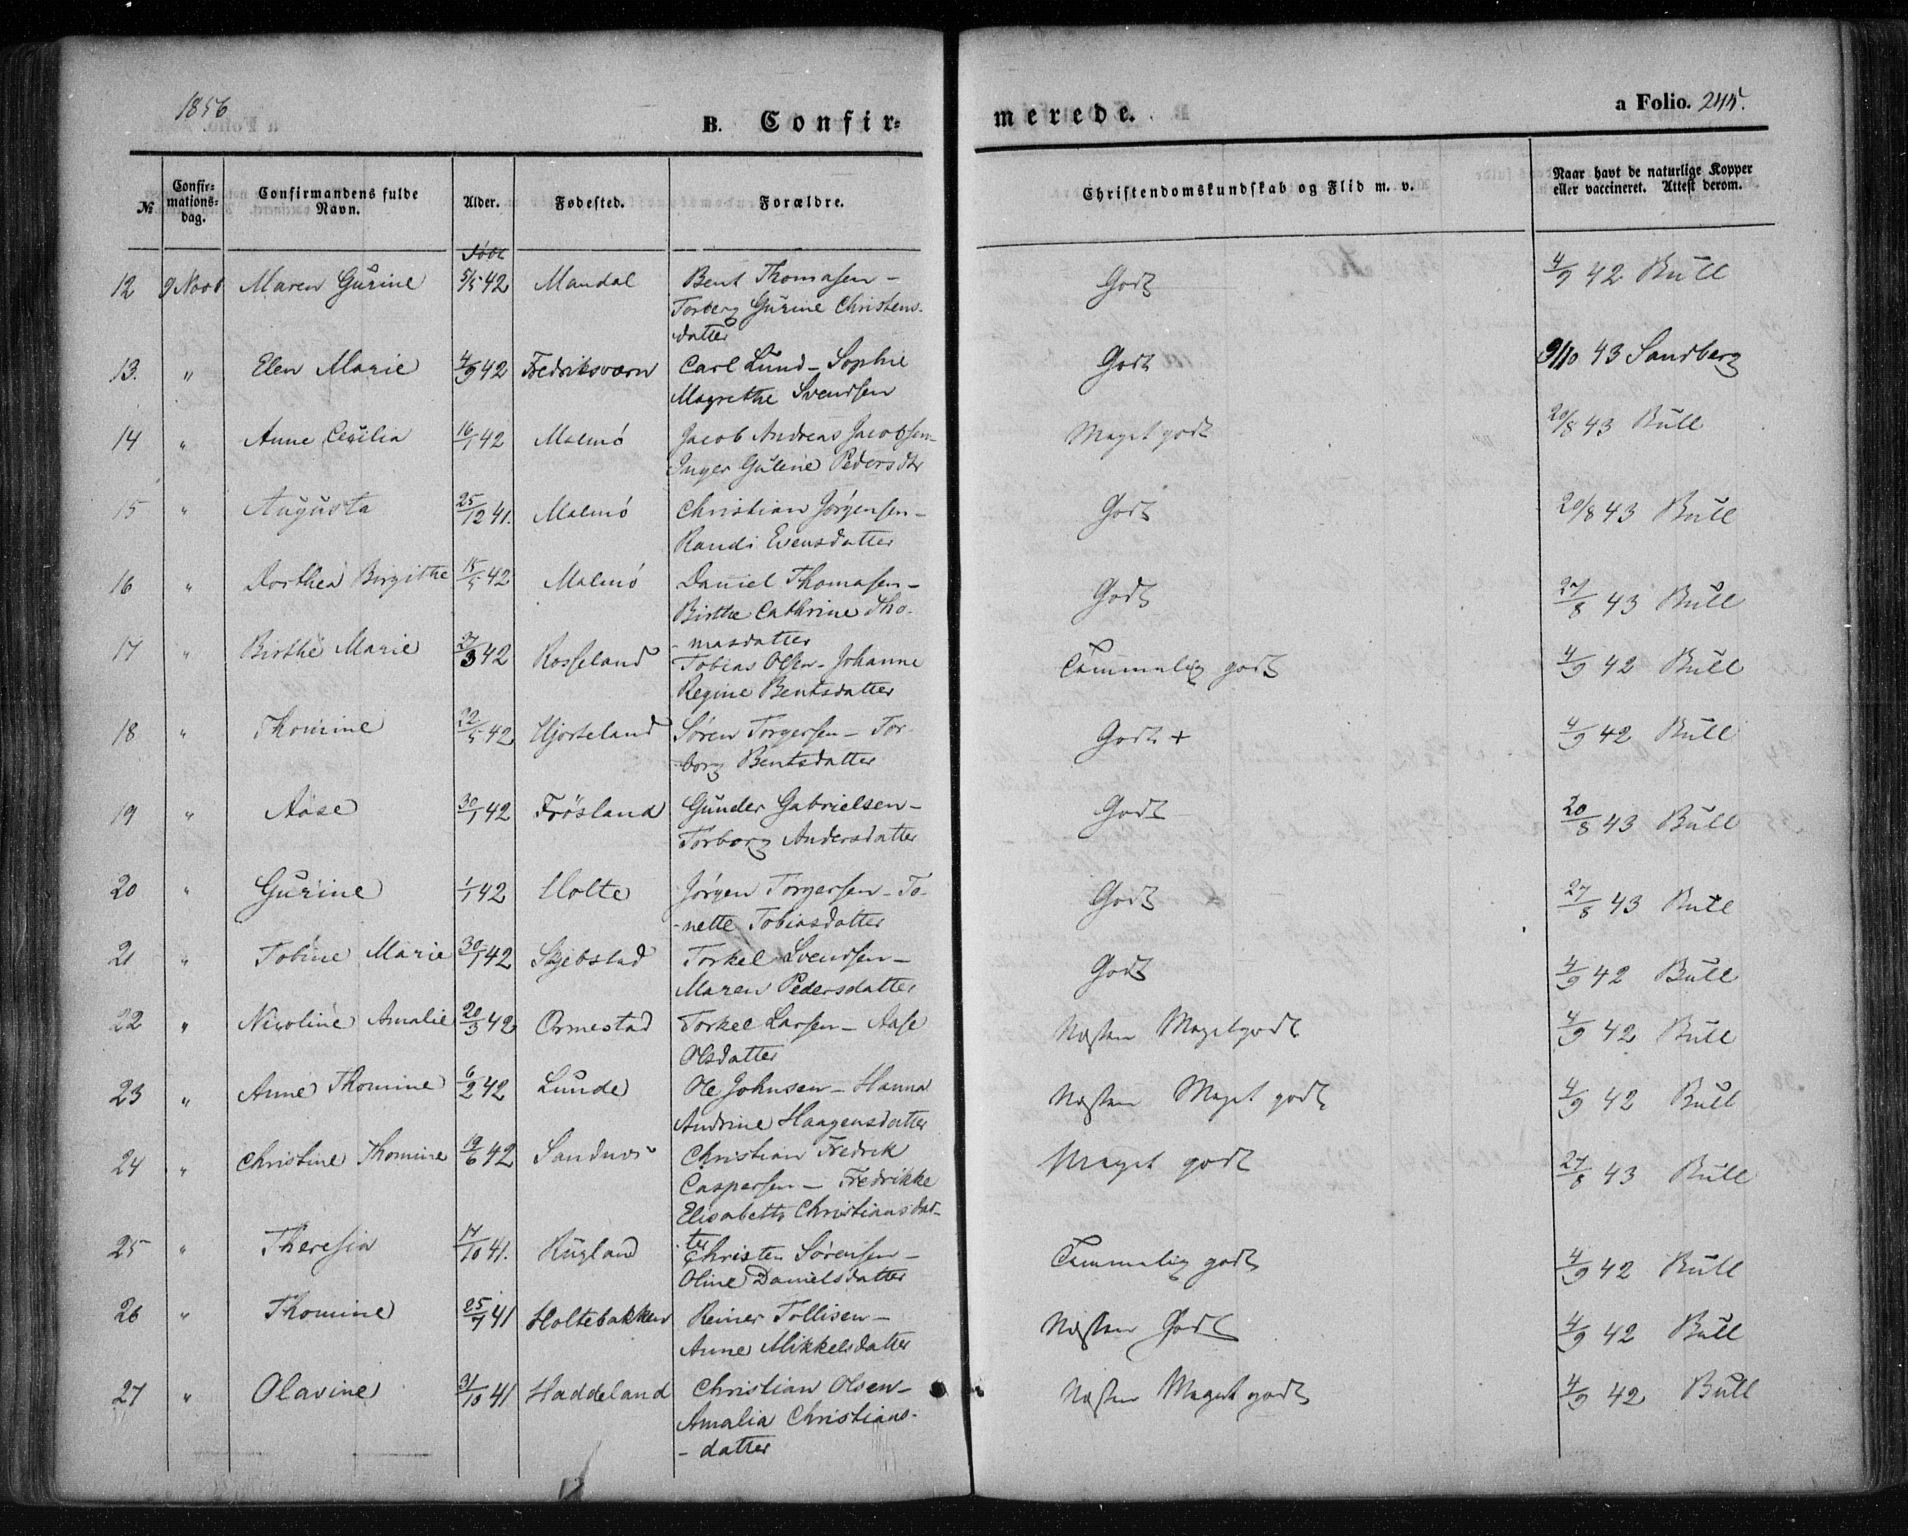 1856
B. Confir-
merede.
a Folio. 245.
№
Confir-
mations-
dag.
Confirmandens fulde
Navn.
Alder.
Fødested.
Forældre.
Christendomskundskab og Flid m. v.
Naar havt de naturlige Kopper
eller vaccineret. Attest derom.
Født
12 9 Novb Maren Gurine 5/5 42 Mandal Bent Thomasen - Godt 4/9 42 Bull
Torberg Gurine Christens-
datter
13. " Elen Marie 4/9 42 Fredriksværn Carl Lund - Sophie Godt 9/10 43 Sandberg
Magrethe Svendsen
14 " Anne Cecilia 16/1 42 Malmø Jacob Andreas Jacobsen - Maget godt 20/8 43 Bull
Inger Guline Pedersdtr
15 " Augusta 25/12 41. Malmø Christian Jørgensen - Godt 20/8 43 Bull
Randi Evensdatter
16 " Dorthea Birgithe 15/5 42 Malmø Daniel Thomasen - Godt 27/8 43 Bull
Birthe Cathrine Tho-
- masdatter
17 " Birthe Marie 27/3 42 Rosseland Tobias Olsen - Johanne Temmelig godt 4/9 42 Bull
Regine Bentsdatter
18 " Thomine 22/5 42 Hjorteland Søren Torgersen - Tor- Godt + 4/9 42 Bull
borg Bentsdatter
19 " Aase 30/1 42 Frøsland Gunder Gabrielsen - Godt 20/8 43 Bull
Torborg Andersdatter
20 " Gurine 1/1 42 Holte Jørgen Torgersen - To- Godt 27/8 43 Bull
- nette Tobiasdatter
21 " Tobine Marie 30/1 42 Skjebstad Torkel Svendsen - Godt 4/9 42 Bull
Maren Pedersdatter
22 " Nicoline Amalie 20/3 42 Ormestad Torkel Larsen - Aase Næsten Megetgodt 4/9 42 Bull
Olsdatter
23 " Anne Thomine 6/2 42 Lunde Ole Johnsen - Hanna Næsten Meget godt 4/9 42 Bull
Andrine Haagensdatter
24 " Christine Thomine 19/6 42 Sandnes Christian Fredrik Meget godt 27/8 43 Bull
Caspersen - Fredrikke
Elisabeth Christiansdat-
ter
25 " Theresia 17/10 41. Rugland Christen Sørensen - Temmelig godt 4/9 42 Bull
Oline Danielsdatter
26 " Thomine 25/7 41 Holtebakken Reiner Tollisen - Næsten Godt 4/9 42 Bull
Anne Mikkelsdatter
27 " Olavine 31/10 41 Haddeland Christian Olsen - Næsten Meget godt 4/9 42 Bull
Amalia Christians-
- datter